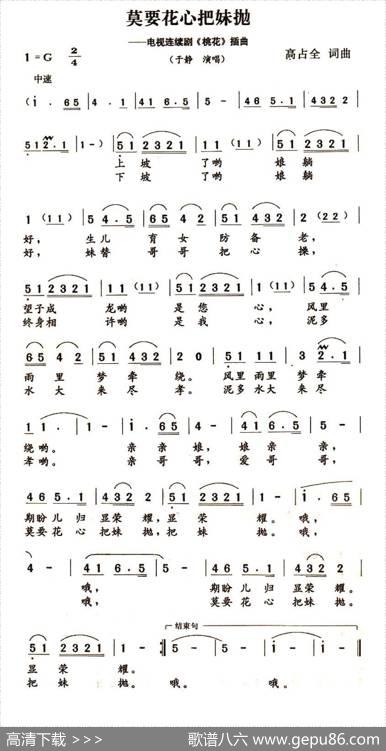 莫要花心把妹抛
——电视连续剧《桃花》插曲
1=G 2/4
（于静 演唱）
高占全 词曲
中速
(i. 65 | 4 - | 41 6.5 | 5 - | 46 5.1 | 4322 |
512.1 | 1 -) | 51 2321 | 11 (11) | 51 2321 |
上坡 了哟 娘躺
下坡 了哟 娘躺
1 (11) | 54.5 | 6542 | 51 432 | 2 (22) |
好， 生儿 育女 防备 老，
好， 妹替 哥哥 把心 操，
512321 | 11 (11) | 512321 | 1 (11) | 54.5 |
望子成 龙哟 是您 心， 风里
终身相 许哟 是我 心， 泥多
6542 | 51 432 | 2 0 | 51 2321 | 3 2.1 |
雨里 梦牵 绕。 风里雨里 梦牵
水大 来尽 孝。 泥多水大 来尽
11. | 1 - | i.65 | 4 - | 41 6.5 | 5 - |
绕哟。 亲亲娘，娘亲亲，
孝哟。 亲哥哥，爱哥哥，
46 5.1 | 4322 | 51 2321 | 1 - | i. 65 |
期盼儿归显荣 耀，显荣 耀。 哦，
莫要花心把妹 抛，把妹 抛。 哦，
4 - | 41 6.5 | 5 - | 46 5.1 | 4322 |
哦， 期盼儿归显荣 耀。
哦， 莫要花心把妹 抛。
结束句
51 2321 | 1 - :‖ 5 - | 5 - | i - | i - ‖
显荣 耀。
把妹 抛。哦。 哦。
高清下载 >>>
歌谱八六 www.gepu86.com